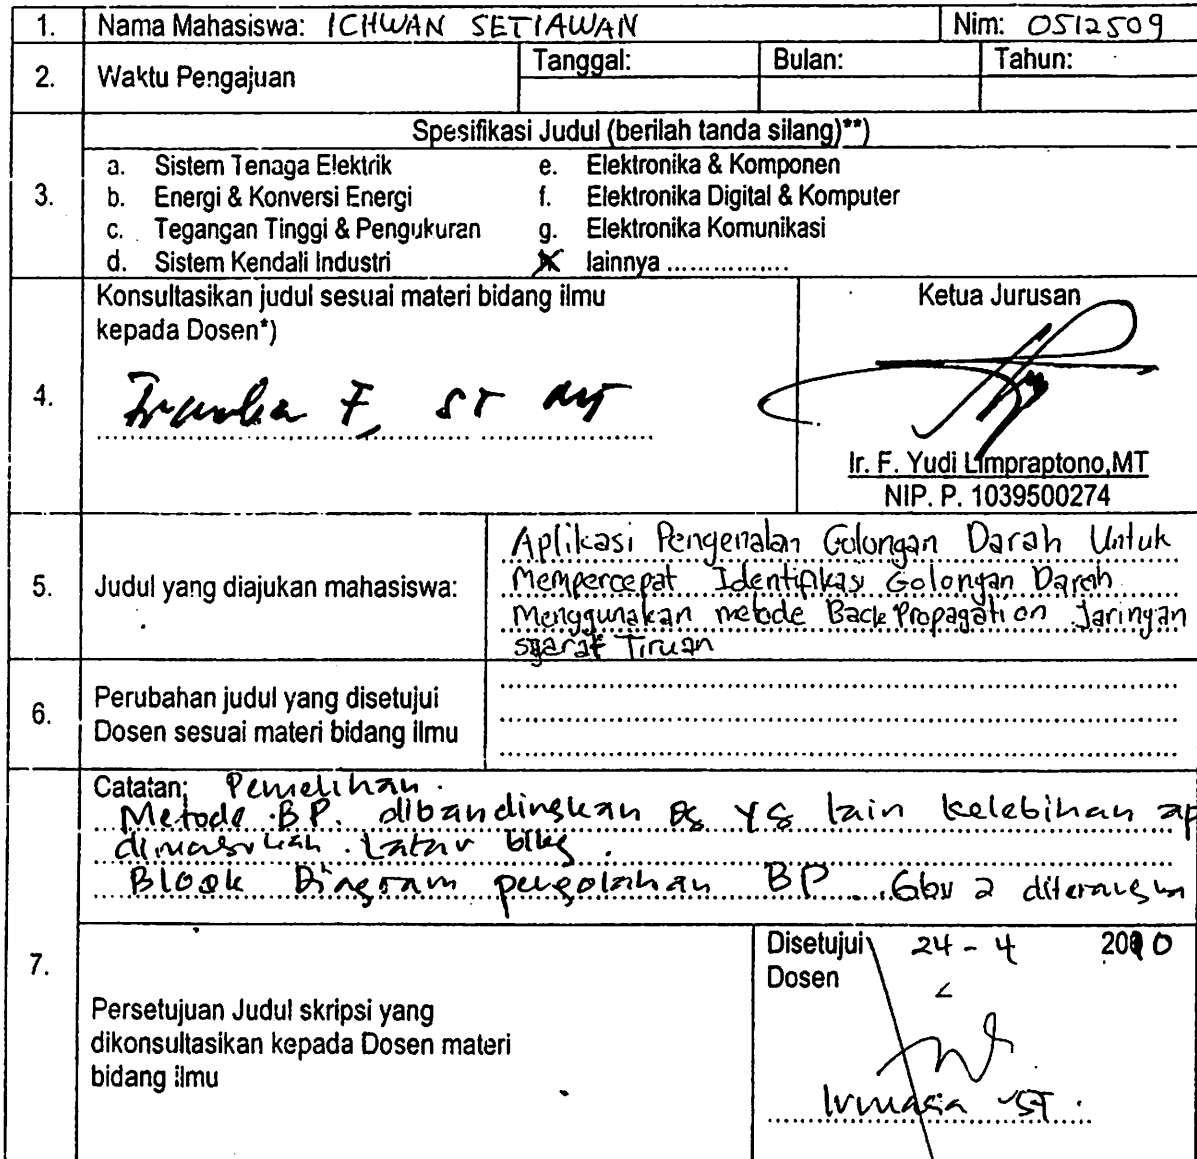 1. Nama Mahasiswa: ICHWAN SETIAWAN Nim: 0512509
2. Waktu Pengajuan Tanggal: Bulan: Tahun:
Spesifikasi Judul (berilah tanda silang)**)
3.
a. Sistem Tenaga Elektrik
b. Energi & Konversi Energi
c. Tegangan Tinggi & Pengukuran
d. Sistem Kendali Industri
e. Elektronika & Komponen
f. Elektronika Digital & Komputer
g. Elektronika Komunikasi
lainnya ................
4.
Konsultasikan judul sesuai materi bidang ilmu
kepada Dosen*)
F, ST
Ketua Jurusan
Ir. F. Yudi Limpraptono,MT
NIP. P. 1039500274
5. Judul yang diajukan mahasiswa:
Aplikasi Pengenalan Golongan Darah Untuk
Mempercepat Identifikasi Golongan Darah
Menggunakan metode Back Propagation Jaringan
syaraf Tiruan
6.
Perubahan judul yang disetujui
Dosen sesuai materi bidang ilmu
7.
Catatan: Pemelihan.
Metode BP. dibandingkan yg lain kelebihan ap
dimasukan Latar blkg.
Blook Diagram pengolahan BP Gbr 2
Persetujuan Judul skripsi yang
dikonsultasikan kepada Dosen materi
bidang ilmu
Disetujui 24 - 4 2010
Dosen
ST.